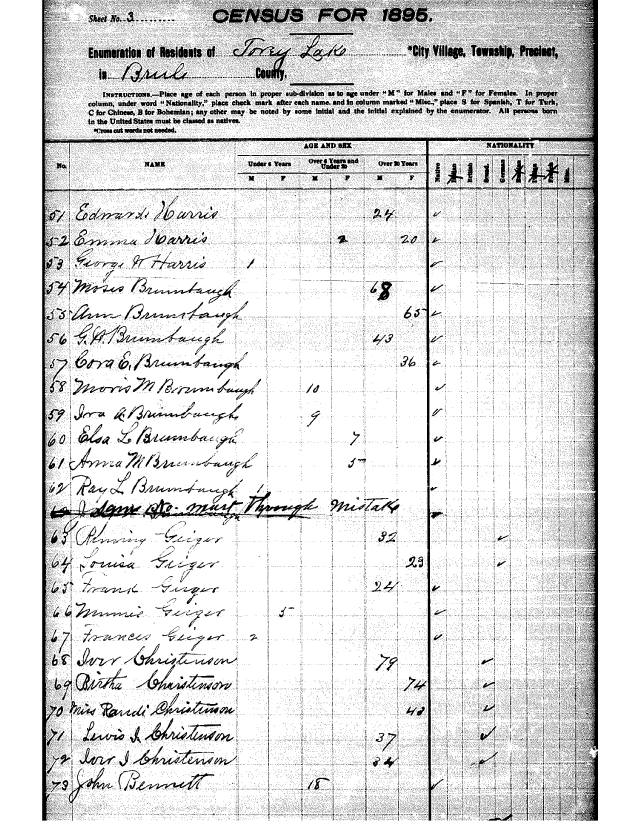 Sheet No. 3
CENSUS FOR 1895.
Enumeration of Residents of Torey Lake *City Village, Township, Precinct,
in Brule County,
INSTRUCTIONS.—Place age of each person in proper sub-division as to age under "M" for Males and "F" for Females. In proper
column, under word "Nationality," place check mark after each name, and in column marked "Misc.," place S for Spanish, T for Turk,
C for Chinese, B for Bohemian; any other may be noted by some initial and the initial explained by the enumerator. All persons born
in the United States must be classed as natives.
*Cross out words not needed.
AGE AND SEX NATIONALITY
No. NAME Under 6 Years Over 6 Years and Under 20 Over 20 Years Native
M F M F M F
51 Edward Harris 24 ✓
52 Emma Harris 2 20 ✓
53 George W Harris 1 ✓
54 Moses Brumbaugh 68 ✓
55 Ann Brumbaugh 65 ✓
56 G. A. Brumbaugh 43 ✓
57 Cora E. Brumbaugh 36 ✓
58 Morris M Brumbaugh 10 ✓
59 Iva A Brumbaugh 9 ✓
60 Elsa L Brumbaugh 7 ✓
61 Anna M Brumbaugh 5 ✓
62 Ray L Brumbaugh 1 ✓
Through Mistake
63 Geiger 32 ✓
64 Louisa Geiger 23 ✓
65 Frank Geiger 24 ✓
66 Minnie Geiger 5 ✓
67 Frances Geiger 2 ✓
68 Iver Christenson 79 ✓
69 Birtha Christenson 74 ✓
70 Miss Randi Christenson 43 ✓
71 Lewis I Christenson 37 ✓
72 Iver I Christenson 34 ✓
73 John Bennett 18 ✓